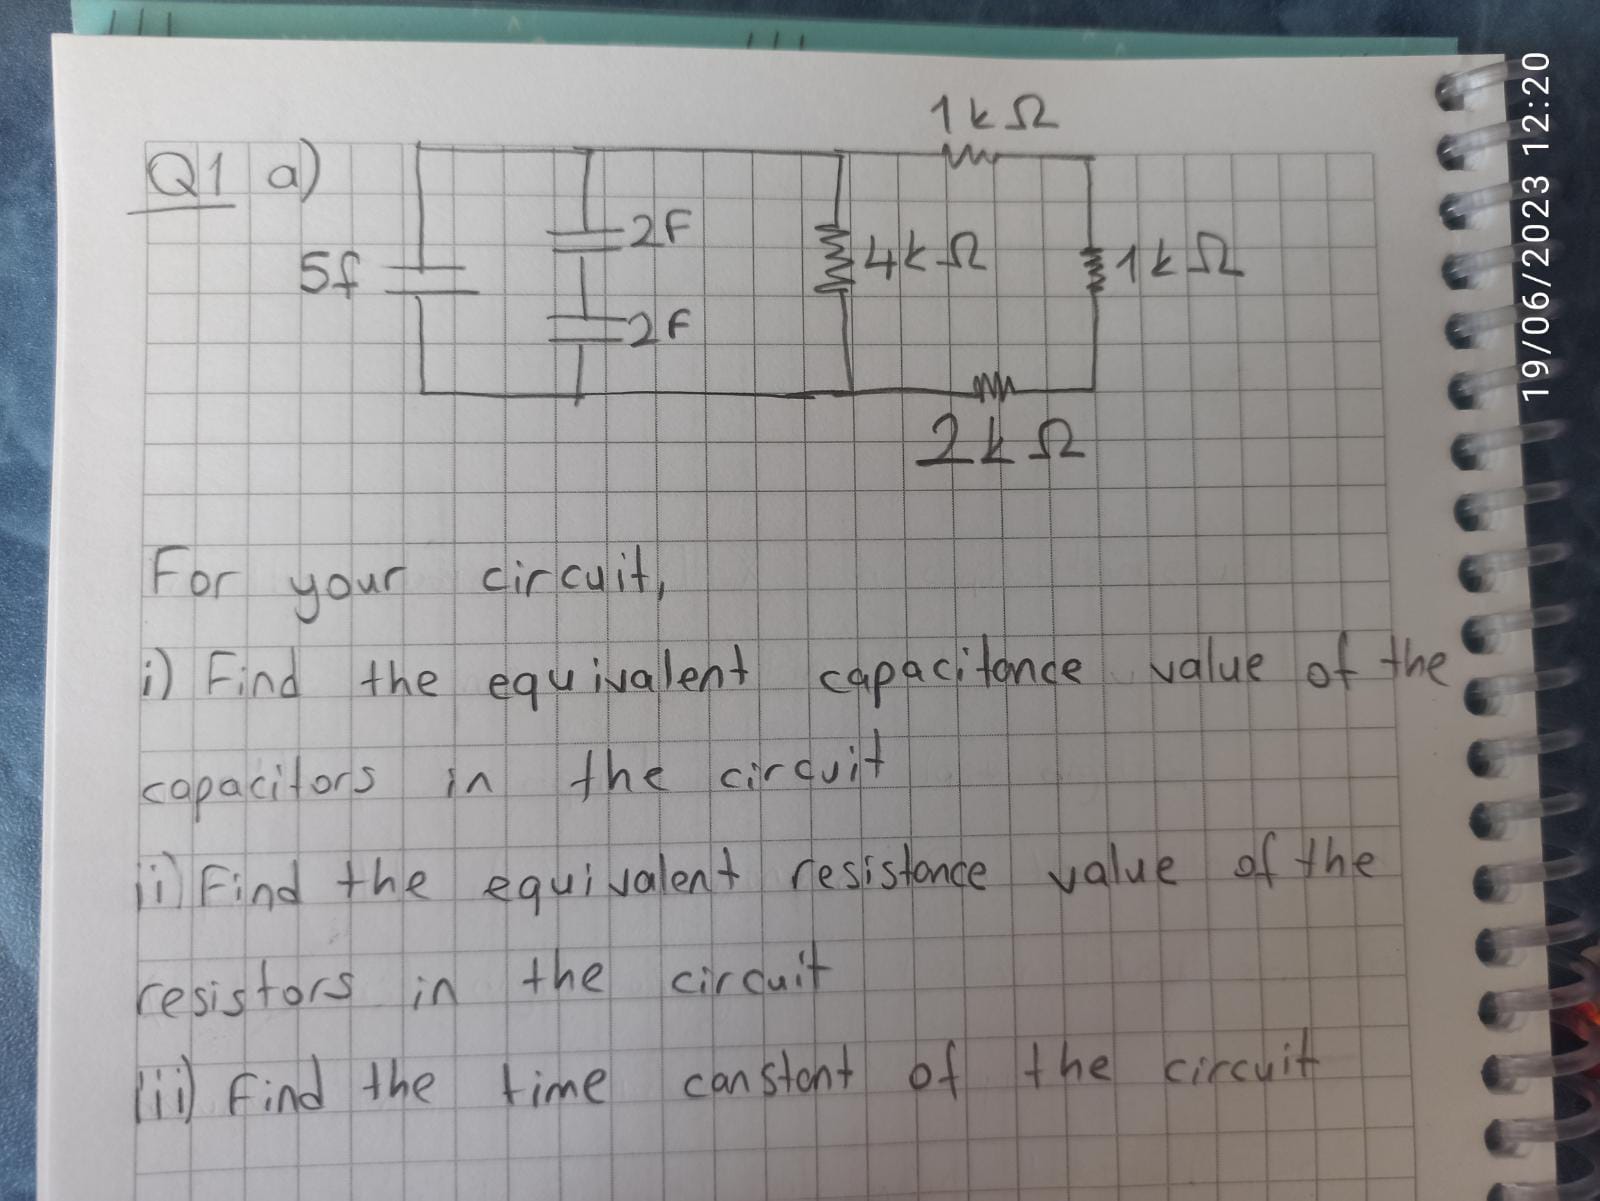 1kΩ
Q1 a)
2F
5f
4kΩ
1kΩ
2F
2kΩ
For your circuit,
i) Find the equivalent capacitance value of the
capacitors in the circuit
ii) Find the equivalent resistance value of the
resistors in the circuit
iii) Find the time constant of the circuit
19/06/2023 12:20